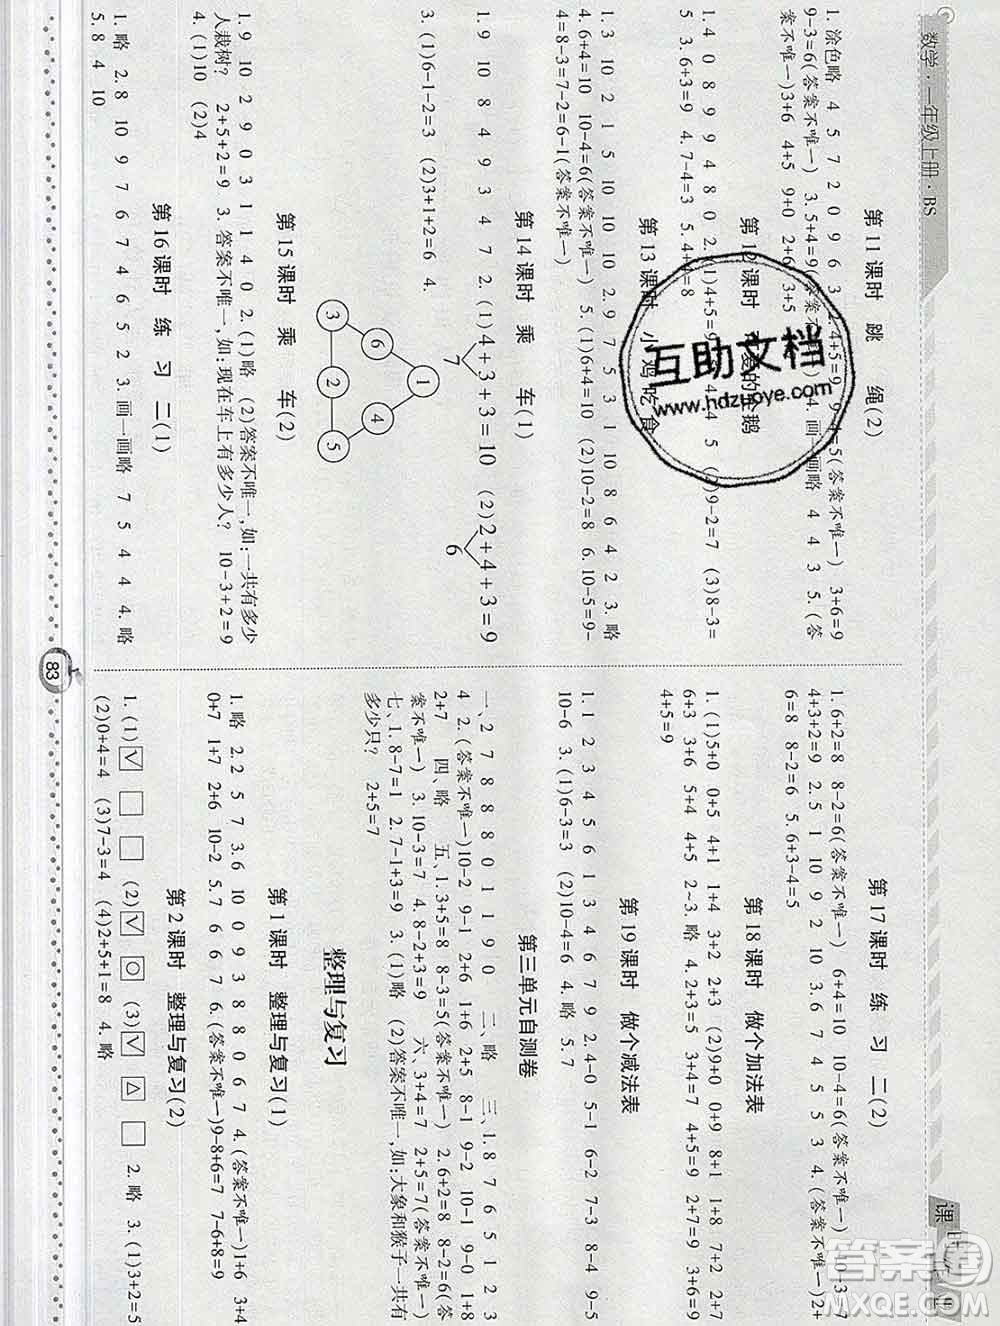 数学·一年级上册·BS
第11课时 跳 绳(2)
1. 涂色略 4 5 7 2 0 9 6 3 2. 4+5=9 9-4=5(答案不唯一) 3+6=9
9-3=6(答案不唯一) 3. 5+4=9(答案不唯一) 4. 画一画略 4 4 3 5. (答
案不唯一)3+6 4+5 9+0 2+6 3+5
第12课时 可爱的企鹅
1. 4 0 8 9 9 4 8 0 2. (1)4+5=9 4 5 (2)9-2=7 (3)8-3=
5 3. 6+3=9 4. 7-4=3 5. 4+4=8
第13课时 小鸡吃食
1. 3 10 2 1 5 10 10 10 2. 9 7 5 3 1 10 8 6 4 2 3. 略
4. 6+4=10 10-4=6(答案不唯一) 5. (1)6+4=10 (2)10-2=8 6. 10-5=9-
4=8-3=7-2=6-1(答案不唯一)
第14课时 乘 车(1)
1. 9 10 8 4 9 3 4 7 2. (1)4+3+3=10 (2)2+4+3=9
7 6
3. (1)6-1-2=3 (2)3+1+2=6 4.
1
6 4
3 2 5
第15课时 乘 车(2)
1. 9 10 2 9 0 3 1 1 4 0 2. (1)略 (2)答案不唯一,如:一共有多少
人栽树? 2+5+2=9 3. 答案不唯一,如:现在车上有多少人? 10-3+2=9
4. (1)10 (2)4
第16课时 练 习 二(1)
1. 略 2. 8 10 9 7 6 7 4 6 5 2 3. 画一画略 7 5 4 4 4. 略
5. 8 4 10
第17课时 练 习 二(2)
1. 6+2=8 8-2=6(答案不唯一) 6+4=10 10-4=6(答案不唯一)
4+3+2=9 2. 5 1 10 9 2 10 3. 6 7 4 5 5 3 4. (答案不唯一)2+
6=8 8-2=6 5. 6+3-4=5
第18课时 做个加法表
1. (1)5+0 0+5 1+4 3+2 (2)9+0 0+9 8+1 1+8 7+2 2+7
6+3 3+6 5+4 4+5 2~3. 略 4. 2+3=5 3+4=7 4+5=9 2+7=9 3+6=9
4+5=9
第19课时 做个减法表
1. 1 2 3 4 5 6 7 9 2. 4-0 5-1 6-2 7-3 8-4 9-5
10-6 3. (1)6-3=3 (2)10-4=6 4. 略 5. 7
第三单元自测卷
一、2 7 8 8 8 0 1 1 9 0 二、略 三、1. 8 7 6 5 1
4 2. (答案不唯一)10-2 9-1 2+6 1+6 2+5 8-1 9-2 10-1 9-0 1+8
2+7 四、略 五、1. 3+5=8 8-3=5(答案不唯一) 2. 6+2=8 8-2=6(答
案不唯一) 3. 10-3=7 4. 8-2+3=9 六、3+4=7 2+5=7(答案不唯一)
七、1. 8-7=1 2. 7-1+3=9 3. (1)略 (2)答案不唯一,如:大象和猴子一共有
多少只? 2+5=7
整理与复习
第1课时 整理与复习(1)
1. 略 2. 2 5 7 3. 6 10 0 9 3 8 8 0 6 7 4. (答案不唯一)1+6
0+7 1+7 2+6 10-2 5. 7 6 6 7 6 6. (答案不唯一)9-8+6=7 7-6+8=9
第2课时 整理与复习(2)
1. (1)☑ □ □ (2)☑ ○ (3)☑ △ □ 2. 略 3. (1)3+2=5
(2)0+4=4 (3)7-3=4 (4)2+5+1=8 4. 略
83
互助文档
www.hdzuoye.com
答案圈
MXQE.COM